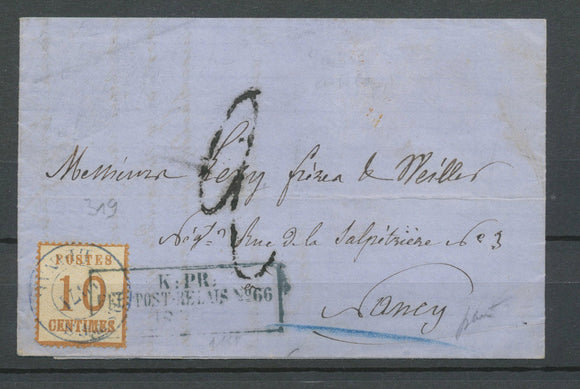 2
Messieurs Lévy frères & Weiller
Nég.ts Rue de la Salpétrière No 3
Nancy
319
POSTES
10
CENTIMES
K. PR.
FELDPOST-RELAIS No 66